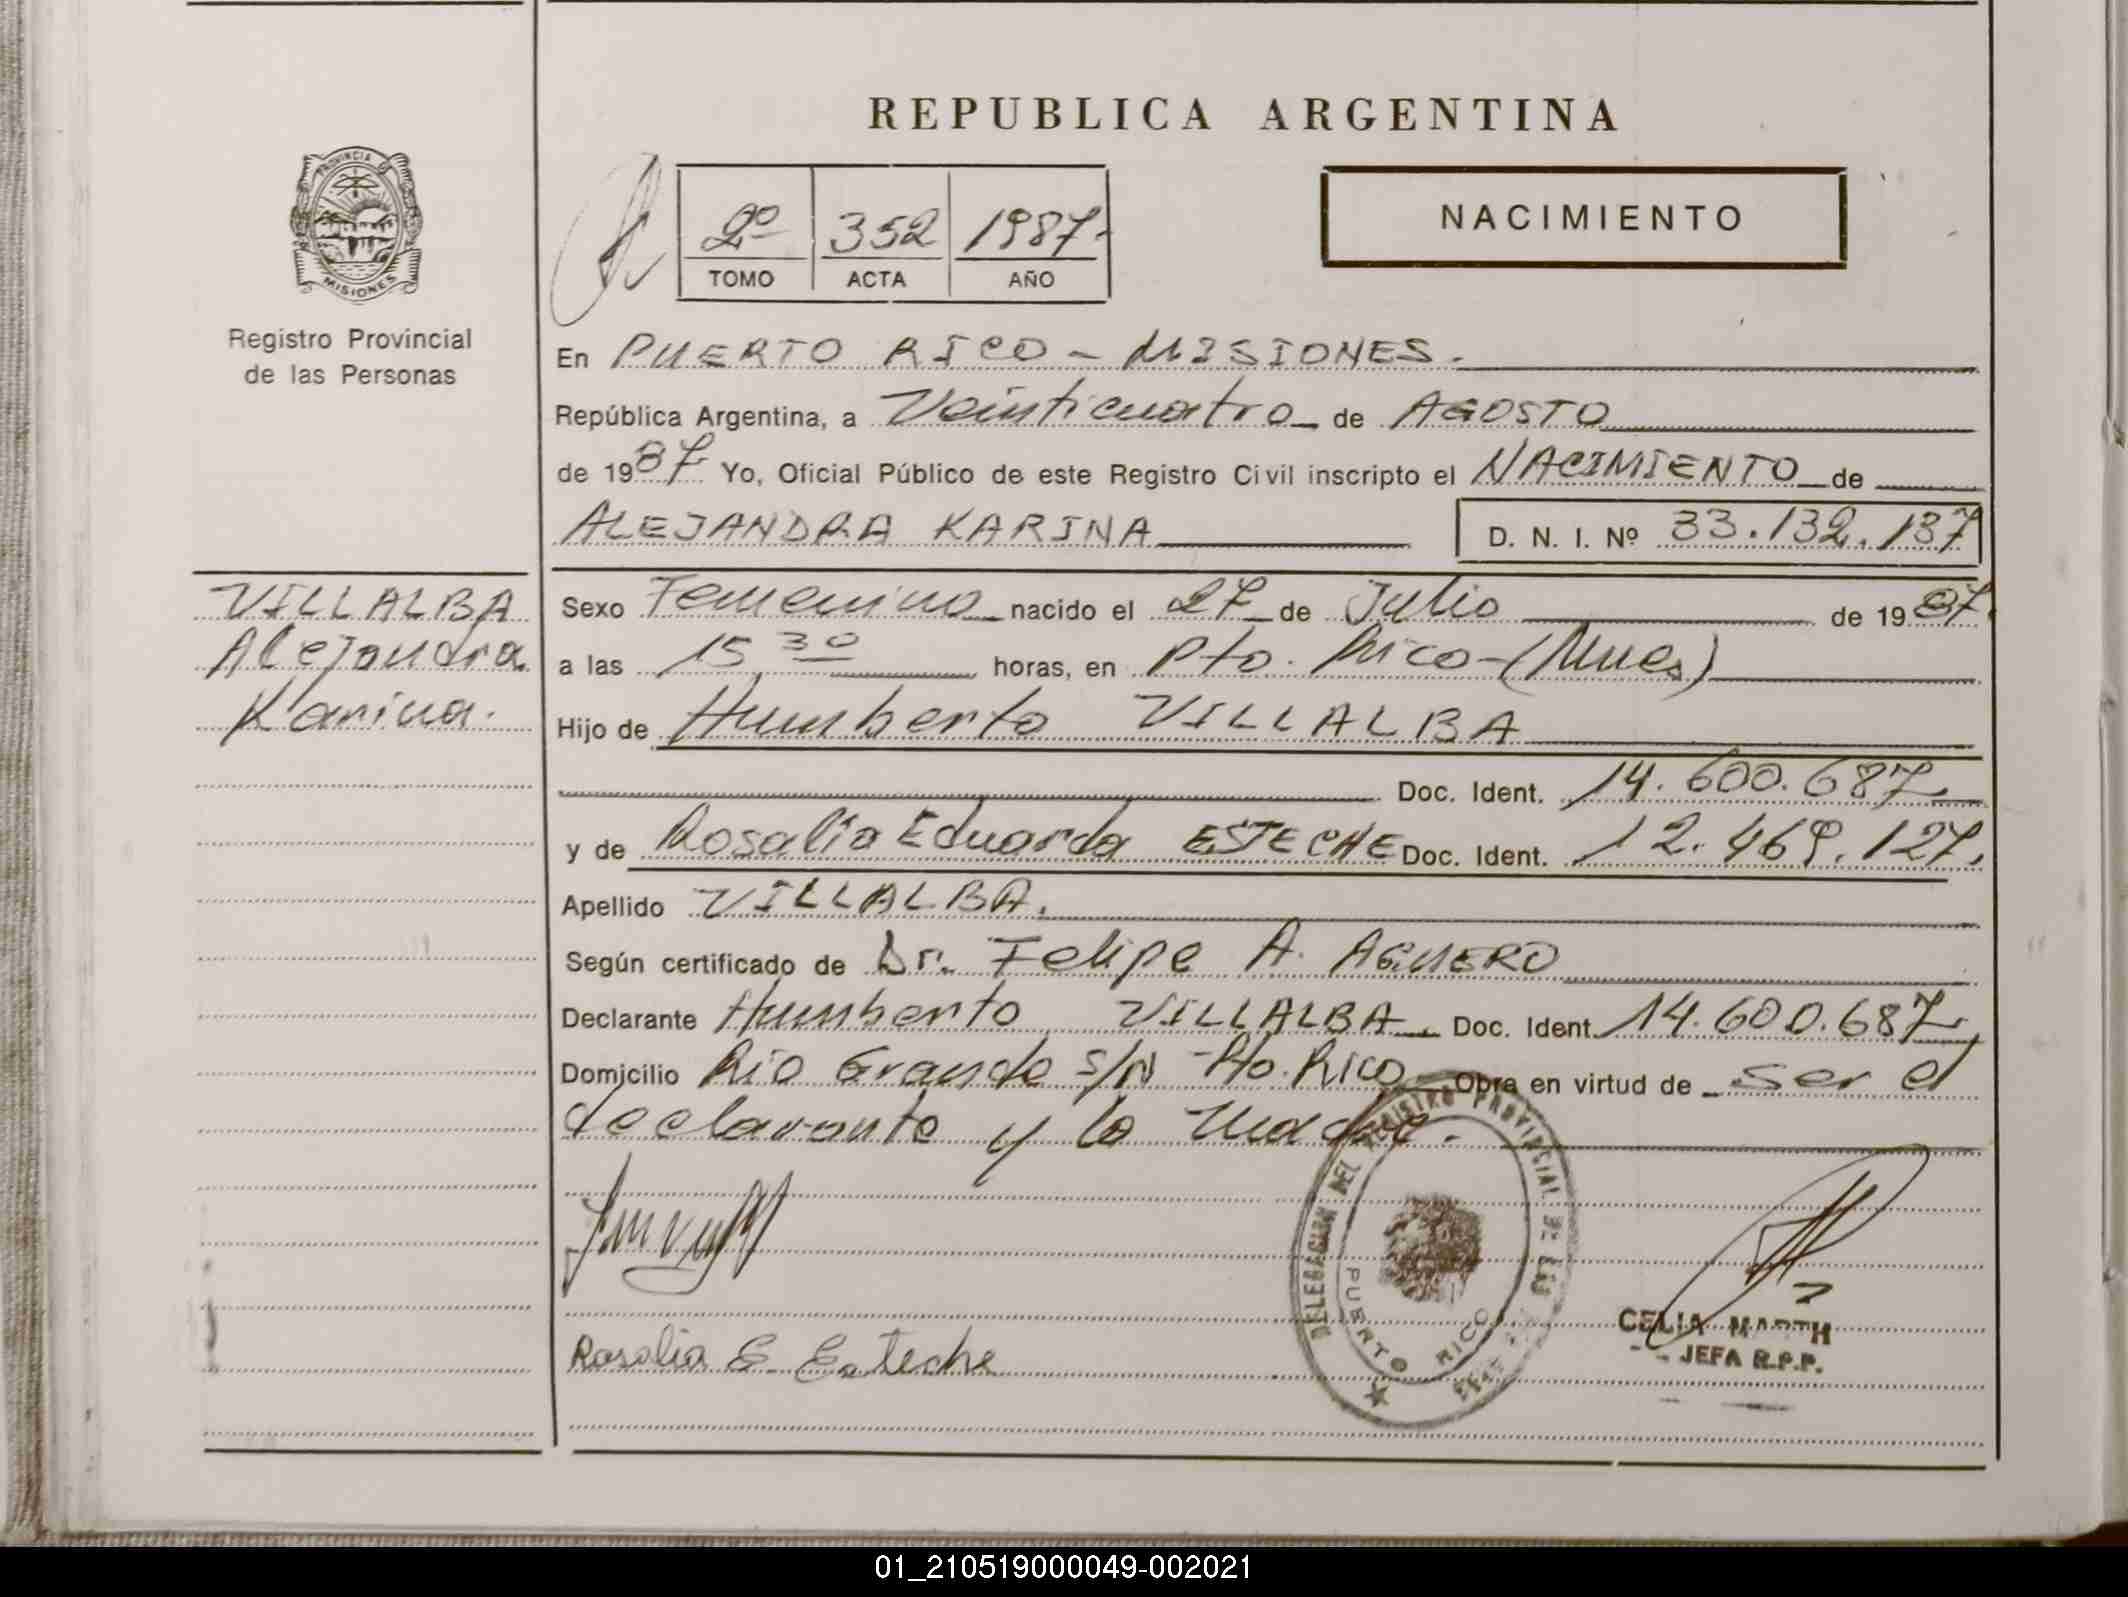 REPUBLICA ARGENTINA
PROVINCIA D MISIONES
Registro Provincial
de las Personas
2º 352 1987.
TOMO ACTA AÑO
NACIMIENTO
En PUERTO RICO - MISIONES.
República Argentina, a Veinticuatro de AGOSTO
de 1987 Yo, Oficial Público de este Registro Civil inscripto el NACIMIENTO de
ALEJANDRA KARINA D. N. I. Nº 33.132.137
VILLALBA
Alejandra
Karina.
Sexo Femenino nacido el 27 de Julio de 1987.
a las 15 30 horas, en Pto. Rico-(Mnes)
Hijo de Humberto VILLALBA
Doc. Ident. 14.600.687
y de Rosalia Eduarda ESTECHE Doc. Ident. 12.469.127.
Apellido VILLALBA.
Según certificado de Dr. Felipe A. AGUERO
Declarante Humberto VILLALBA Doc. Ident. 14.600.687
Domicilio Rio Grande s/n - Pto. Rico Obra en virtud de ser el
declarante y la madre.
DELEGACION DEL REGISTRO PROVINCIAL DE LAS
PUERTO RICO
CELIA MARTH
JEFA R.P.P.
Rosalia E. Esteche
01_210519000049-002021